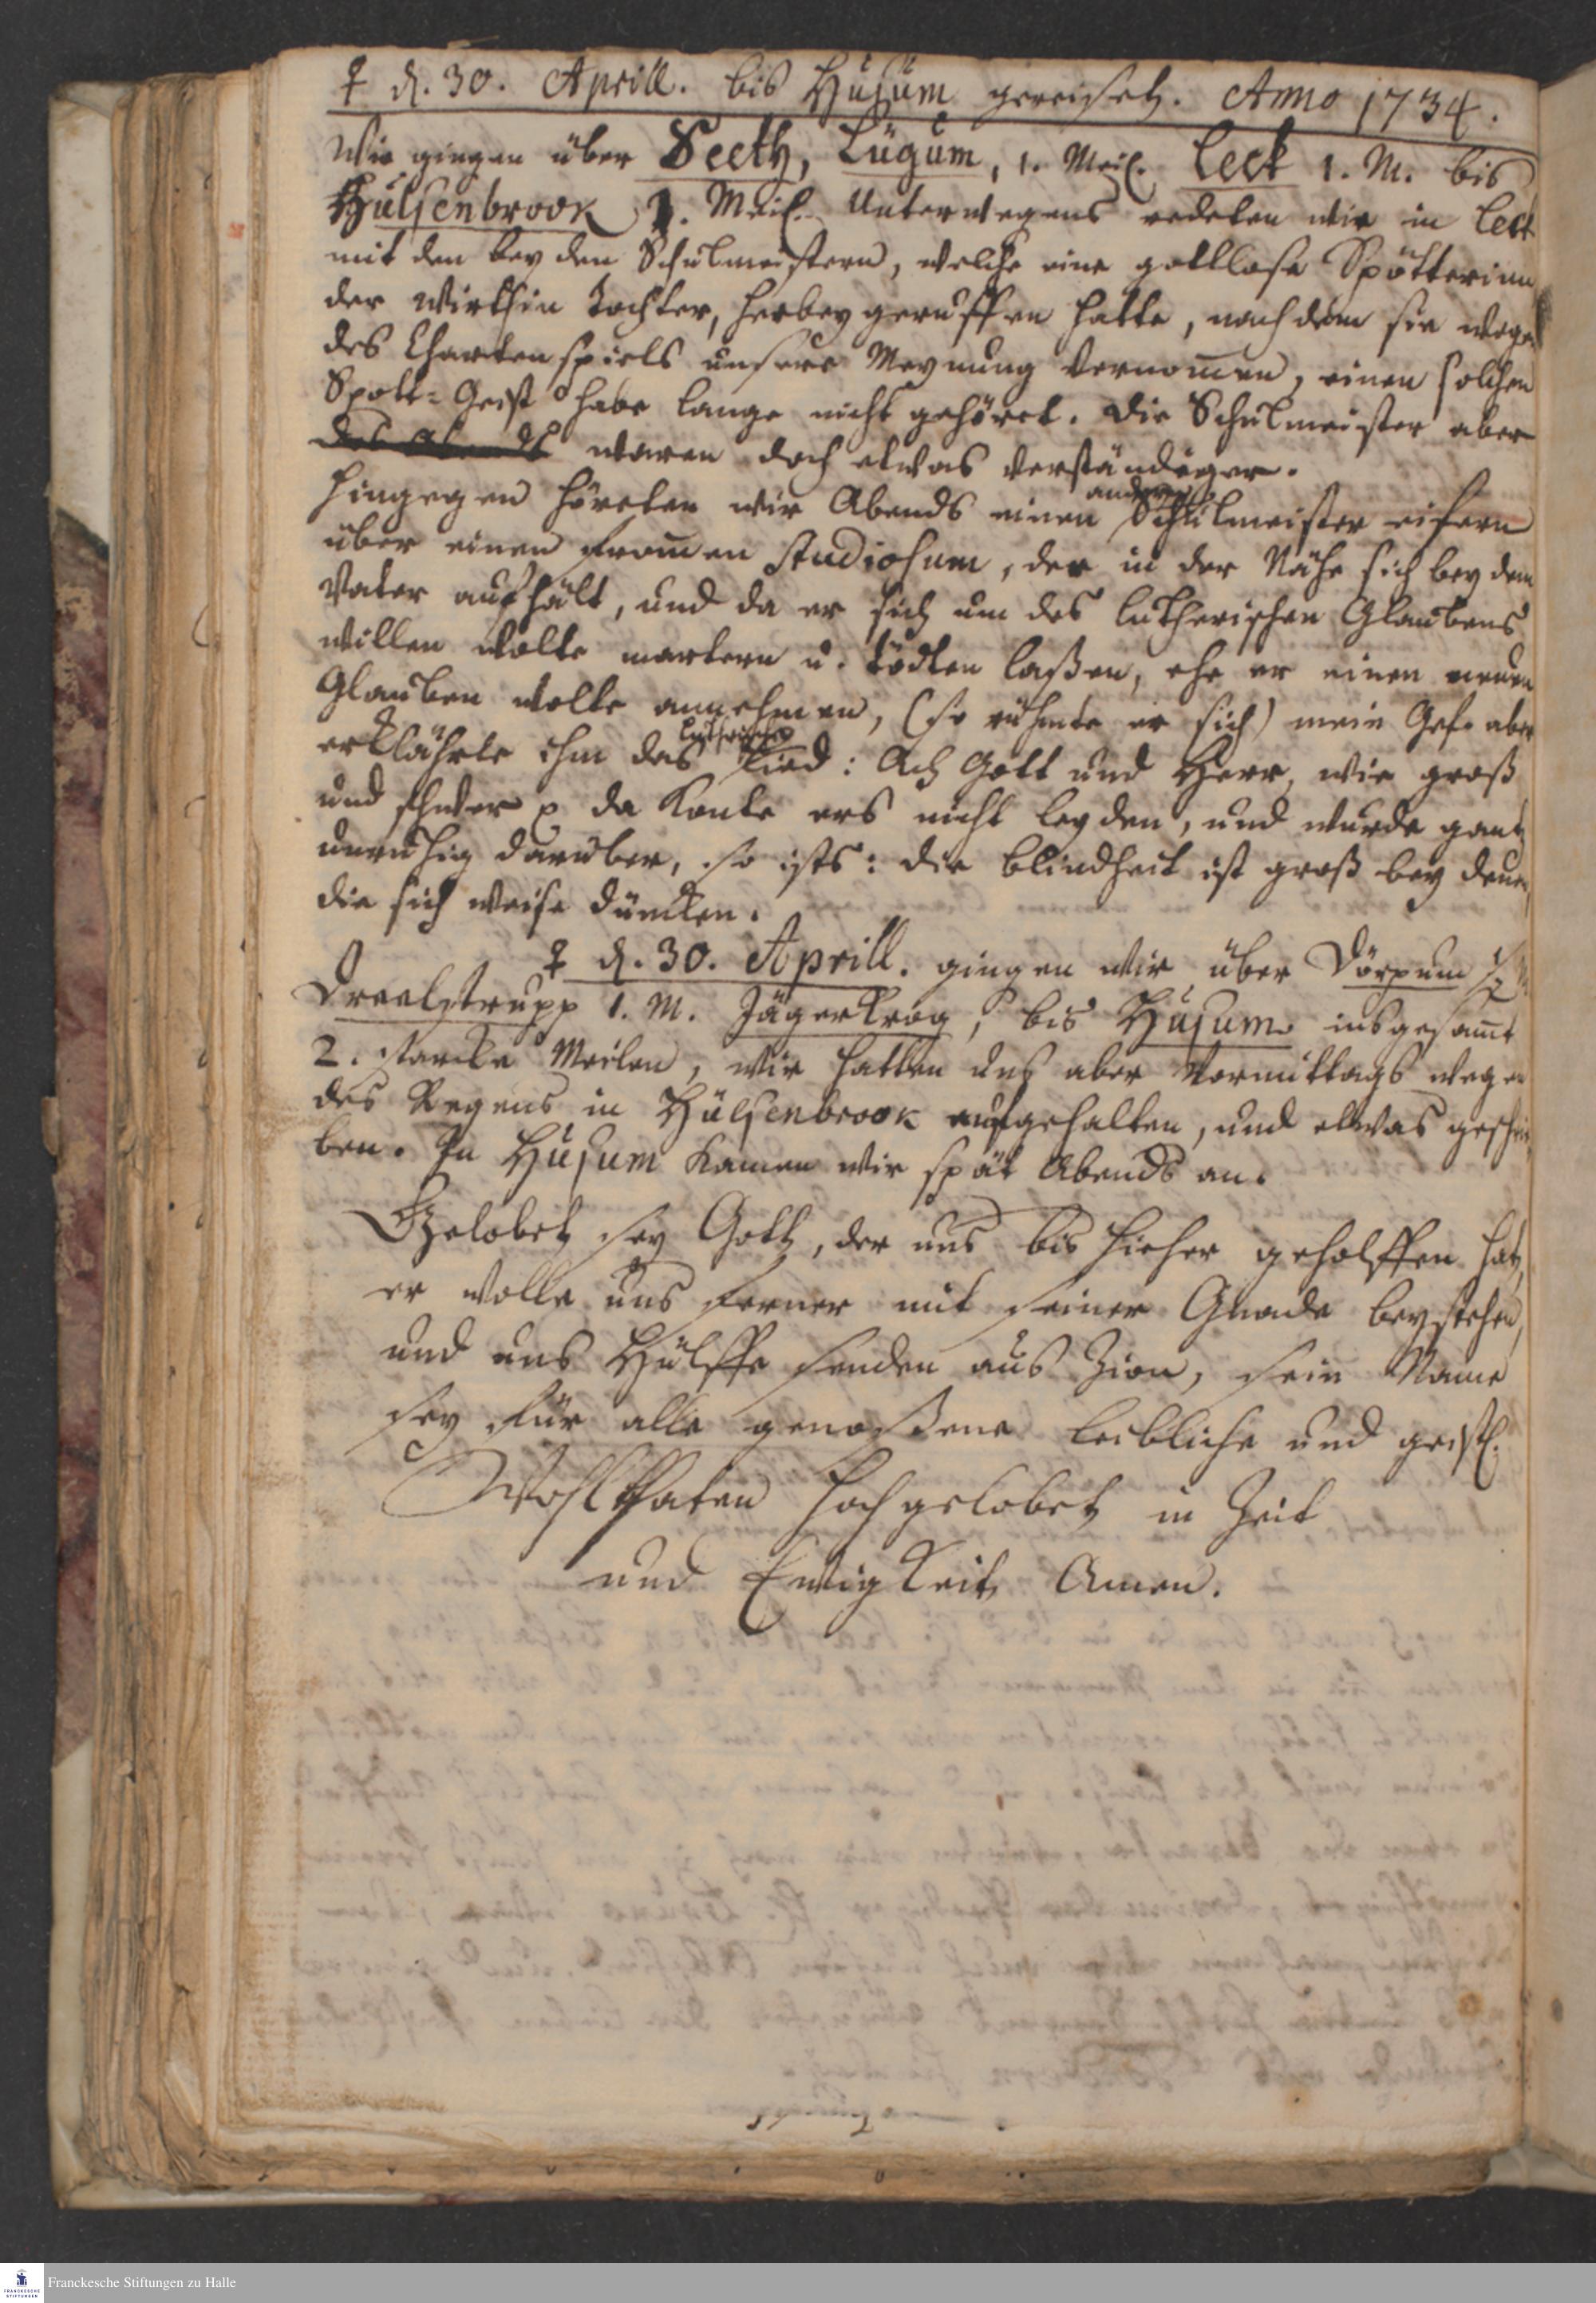 ♀ d. 30. Aprill. bis Husum gereiset. Anno 1734.
Wir gingen über Seeth, Lügum, 1. Meil. Leck 1. M. bis
Hülsenbrook 1. Meil. Unterwegens redeten wir in Leck
mit den beyden Schulmeistern, welche eine gottlose Spötterinn
der Wirthin Tochter, herbey geruffen hatte, nachdem sie wegen
des Chartenspiels unsere Meynung vernom̄en, einen solchen
Spott-Geist habe lange nicht gehöret. Die Schulmeister aber
des Abends waren doch etwas verständiger.
Hingegen höreten wir Abends einen andern Schulmeister eifern
über einen from̄en Studiosum, der in der Nähe sich bey dem
Vater aufhält, und da er sich um des Lutherischen Glaubens
willen wolte martern u. tödten laßen, ehe er einen neuen
Glauben wolte annehmen, (so rühmte er sich) mein Gef. aber
erklährte ihm das Lutherische Lied: Ach Gott und Herr, wie groß
und schwer p da konte ers nicht leyden, und wurde gantz
unruhig darüber, so ists: die Blindheit ist groß bey denen,
die sich weise düncken.
♀ d. 30. Aprill. gingen wir über Dörpum ½ M
Dreelstrupp 1. M. Jägerkrog, bis Husum insgesam̄t
2. starcke Meilen, wir hatten uns aber Vormittags wegen
des Regens in Hülsenbrook aufgehalten, und etwas geschrie-
ben. In Husum kamen wir spät Abends an.
Gelobet sey Gott, der uns bis hieher geholffen hat,
er wolle uns ferner mit seiner Gnade beystehen,
und uns Hülffe senden aus Zion, sein Name
sey für alle genoßene leibliche und geistl.
Wohlthaten hochgelobet in Zeit
und Ewigkeit Amen.
Franckesche Stiftungen zu Halle